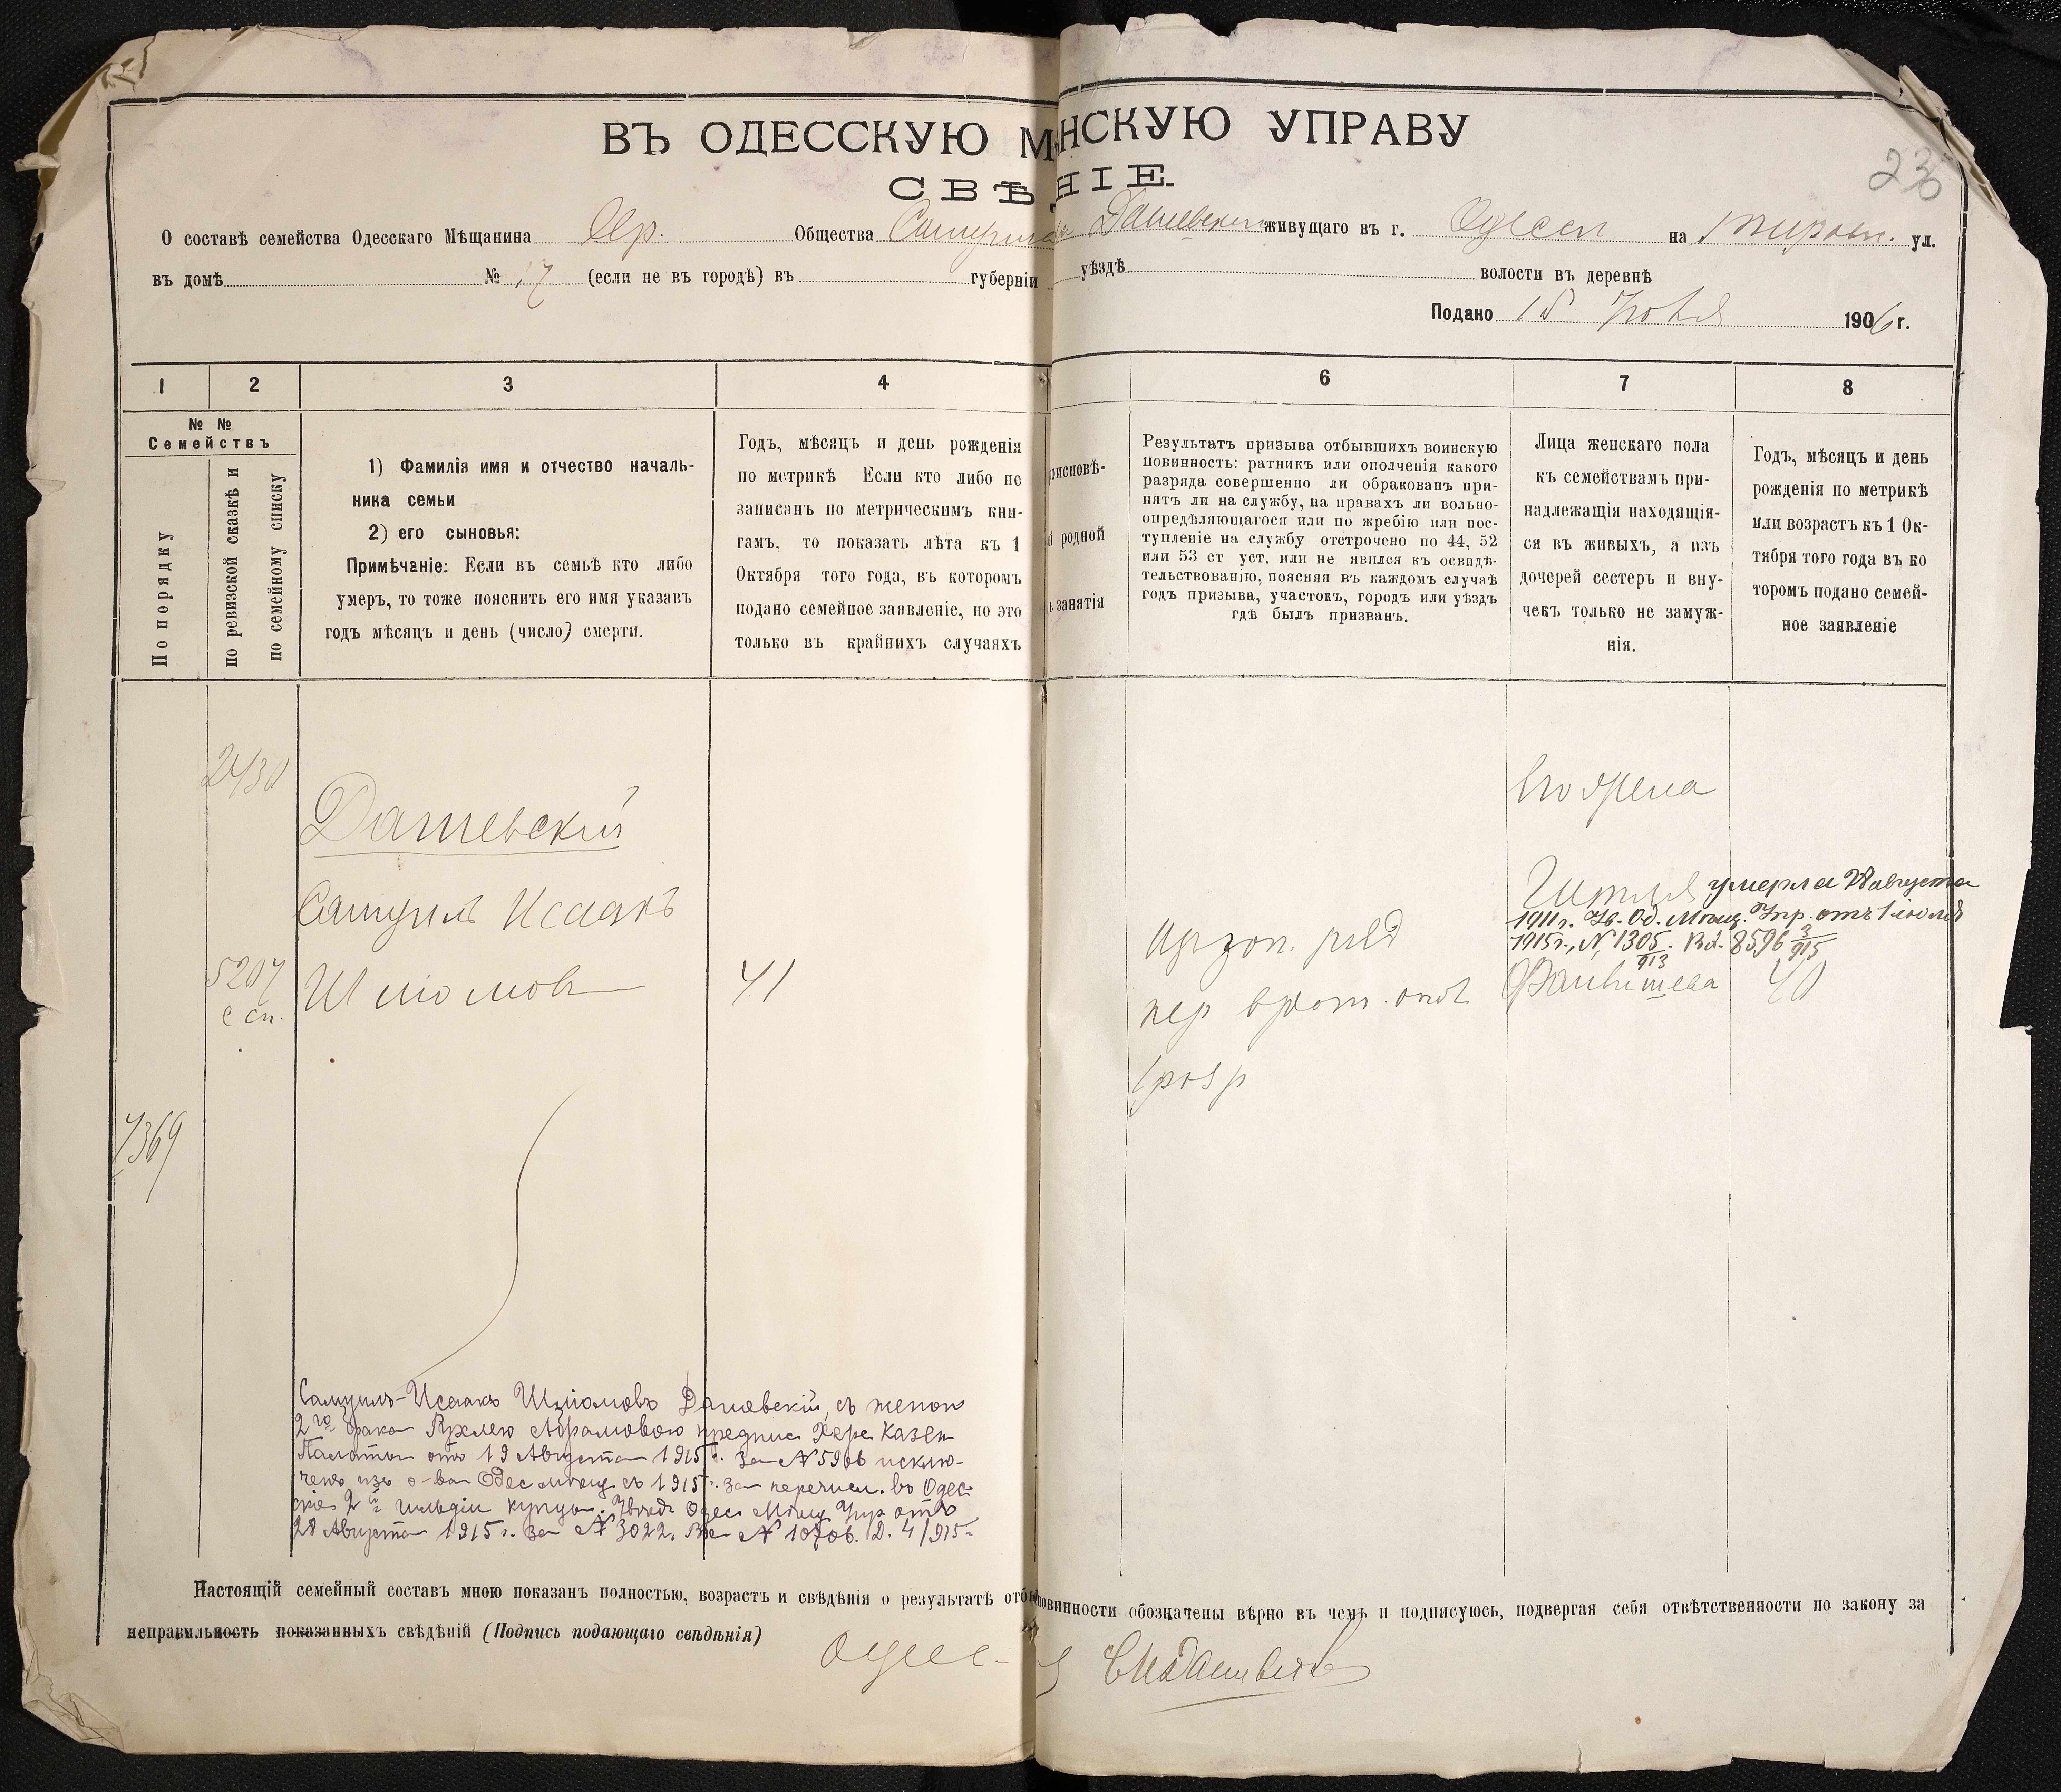 ВЪ ОДЕССКУЮ М НСКУЮ УПРАВУ
СВѢ НІЕ.
23
О составѣ семейства Одесскаго Мѣщанина Евр. Общества Самуила Дашевскаго живущаго въ г. Одессѣ на ул.
въ домѣ № 17 (если не въ городѣ) въ губерніи уѣздѣ волости въ деревнѣ
Подано 15 1906 г.
1 2 3 4 6 7 8
№ №
Семействъ
По порядку
по ревизской сказкѣ и
по семейному списку
1) Фамилія имя и отчество началь-
ника семьи
2) его сыновья:
Примѣчаніе: Если въ семьѣ кто либо
умеръ, то тоже пояснить его имя указавъ
годъ мѣсяцъ и день (число) смерти.
Годъ, мѣсяцъ и день рожденія
по метрикѣ Если кто либо не
записанъ по метрическимъ кни-
гамъ, то показать лѣта къ 1
Октября того года, въ которомъ
подано семейное заявленіе, но это
только въ крайнихъ случаяхъ
оисповѣ-
родной
занятія
Результатъ призыва отбывшихъ воинскую
повинность: ратникъ или ополченія какого
разряда совершенно ли обракованъ при-
нятъ ли на службу, на правахъ ли вольно-
опредѣляющагося или по жребію или пос-
тупленіе на службу отстрочено по 44, 52
или 53 ст уст. или не явился къ освидѣ-
тельствованію, поясняя въ каждомъ случаѣ
годъ призыва, участокъ, городъ или уѣздъ
гдѣ былъ призванъ.
Лица женскаго пола
къ семействамъ при-
надлежащія находящія-
ся въ живыхъ, а изъ
дочерей сестеръ и вну-
чекъ только не замуж-
нія.
Годъ, мѣсяцъ и день
рожденія по метрикѣ
или возрастъ къ 1 Ок-
тября того года въ ко
торомъ подано семей-
ное заявленіе
2430
Дашевскій
Самуилъ Исаакъ
5207
с сп.
Шліомовъ
41
7369
Его жена
Гитля умерла 28 августа
1911 г. Ув. Од. Мѣщ. Упр. отъ 1 іюля
1915 г., № 1305/913. Вх. 8596 3/915
40
1 разр
Самуилъ-Исаакъ Шліомовъ Дашевскій, съ женою
2го брака Рухлею Абрамовою предпис. Херс. Казен
Палаты отъ 19 Августа 1915 г. за № 5966 исклю-
ченъ изъ о-ва Одес мѣщ съ 1915 г. за перечисл. въ Одес-
скіе 2й гильдіи купцы. Увѣд. Одес. Мѣщ Упр отъ
28 Августа 1915 г. за № 3022. Вх. № 10706. Д. 4/915 г.
Настоящій семейный составъ мною показанъ полностью, возрастъ и свѣдѣнія о результатѣ отбы повинности обозначены вѣрно въ чемъ и подписуюсь, подвергая себя отвѣтственности по закону за
неправильность показанныхъ свѣдѣній (Подпись подающаго свѣдѣнія)